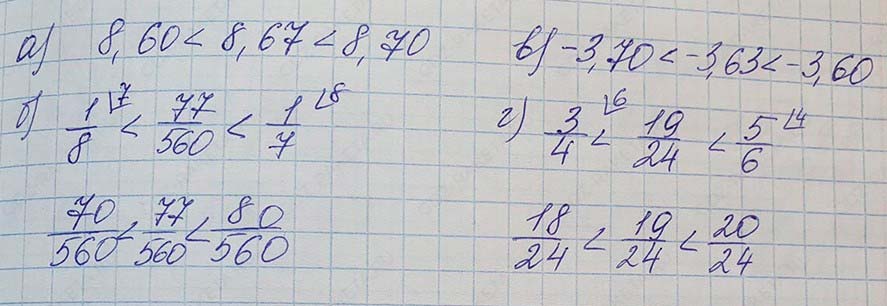 а) 8,60 < 8,67 < 8,70
в) -3,70 < -3,63 < -3,60
б) 1/8 ⌊7 < 77/560 < 1/7 ⌊8
г) 3/4 ⌊6 < 19/24 < 5/6 ⌊4
70/560 < 77/560 < 80/560
18/24 < 19/24 < 20/24